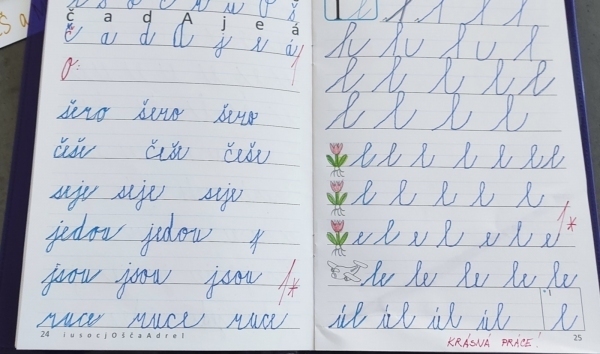 č a d A j e á
č a d A j e á
O:
1
šero šero šero
češe češe češe
seje seje seje
jedou jedou
jsou jsou jsou
1*
ruce ruce ruce
24 i u s o c j O š č a A d r e l
l l l l
l l l l l l
l l l l
l l l l l l l
l l l l l
e l e l e l e
1*
le le le le le
úl úl úl úl
l
KRÁSNÁ PRÁCE!
25